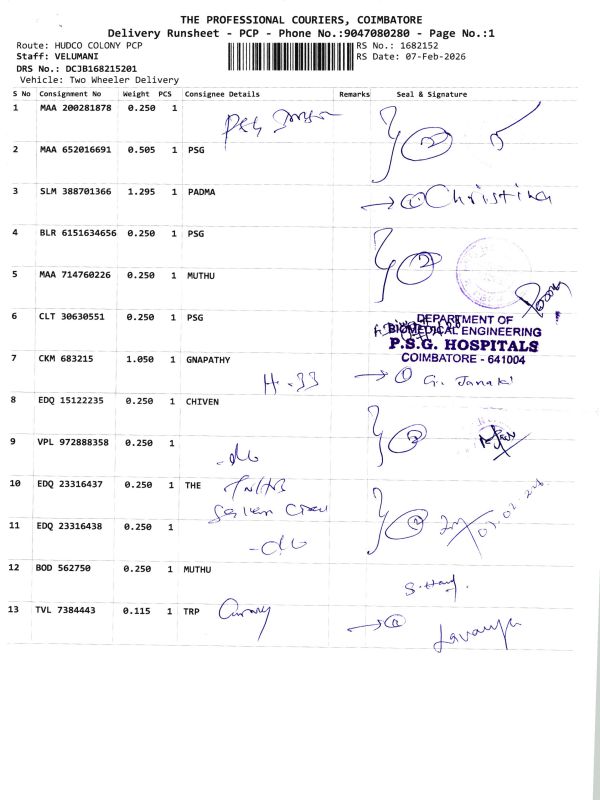 THE PROFESSIONAL COURIERS, COIMBATORE
Delivery Runsheet - PCP - Phone No.:9047080280 - Page No.:1
Route: HUDCO COLONY PCP
RS No.: 1682152
Staff: VELUMANI
RS Date: 07-Feb-2026
DRS No.: DCJB168215201
Vehicle: Two Wheeler Delivery
S No Consignment No Weight PCS Consignee Details Remarks Seal & Signature
1 MAA 200281878 0.250 1
2 MAA 652016691 0.505 1 PSG
3 SLM 388701366 1.295 1 PADMA Christina
4 BLR 6151634656 0.250 1 PSG
5 MAA 714760226 0.250 1 MUTHU
6 CLT 30630551 0.250 1 PSG
DEPARTMENT OF
BIOMEDICAL ENGINEERING
P.S.G. HOSPITALS
COIMBATORE - 641004
7 CKM 683215 1.050 1 GNAPATHY
H-33 G. Janaki
8 EDQ 15122235 0.250 1 CHIVEN
9 VPL 972888358 0.250 1
-do
10 EDQ 23316437 0.250 1 THE
11 EDQ 23316438 0.250 1
-do
12 BOD 562750 0.250 1 MUTHU
13 TVL 7384443 0.115 1 TRP
Lavanya